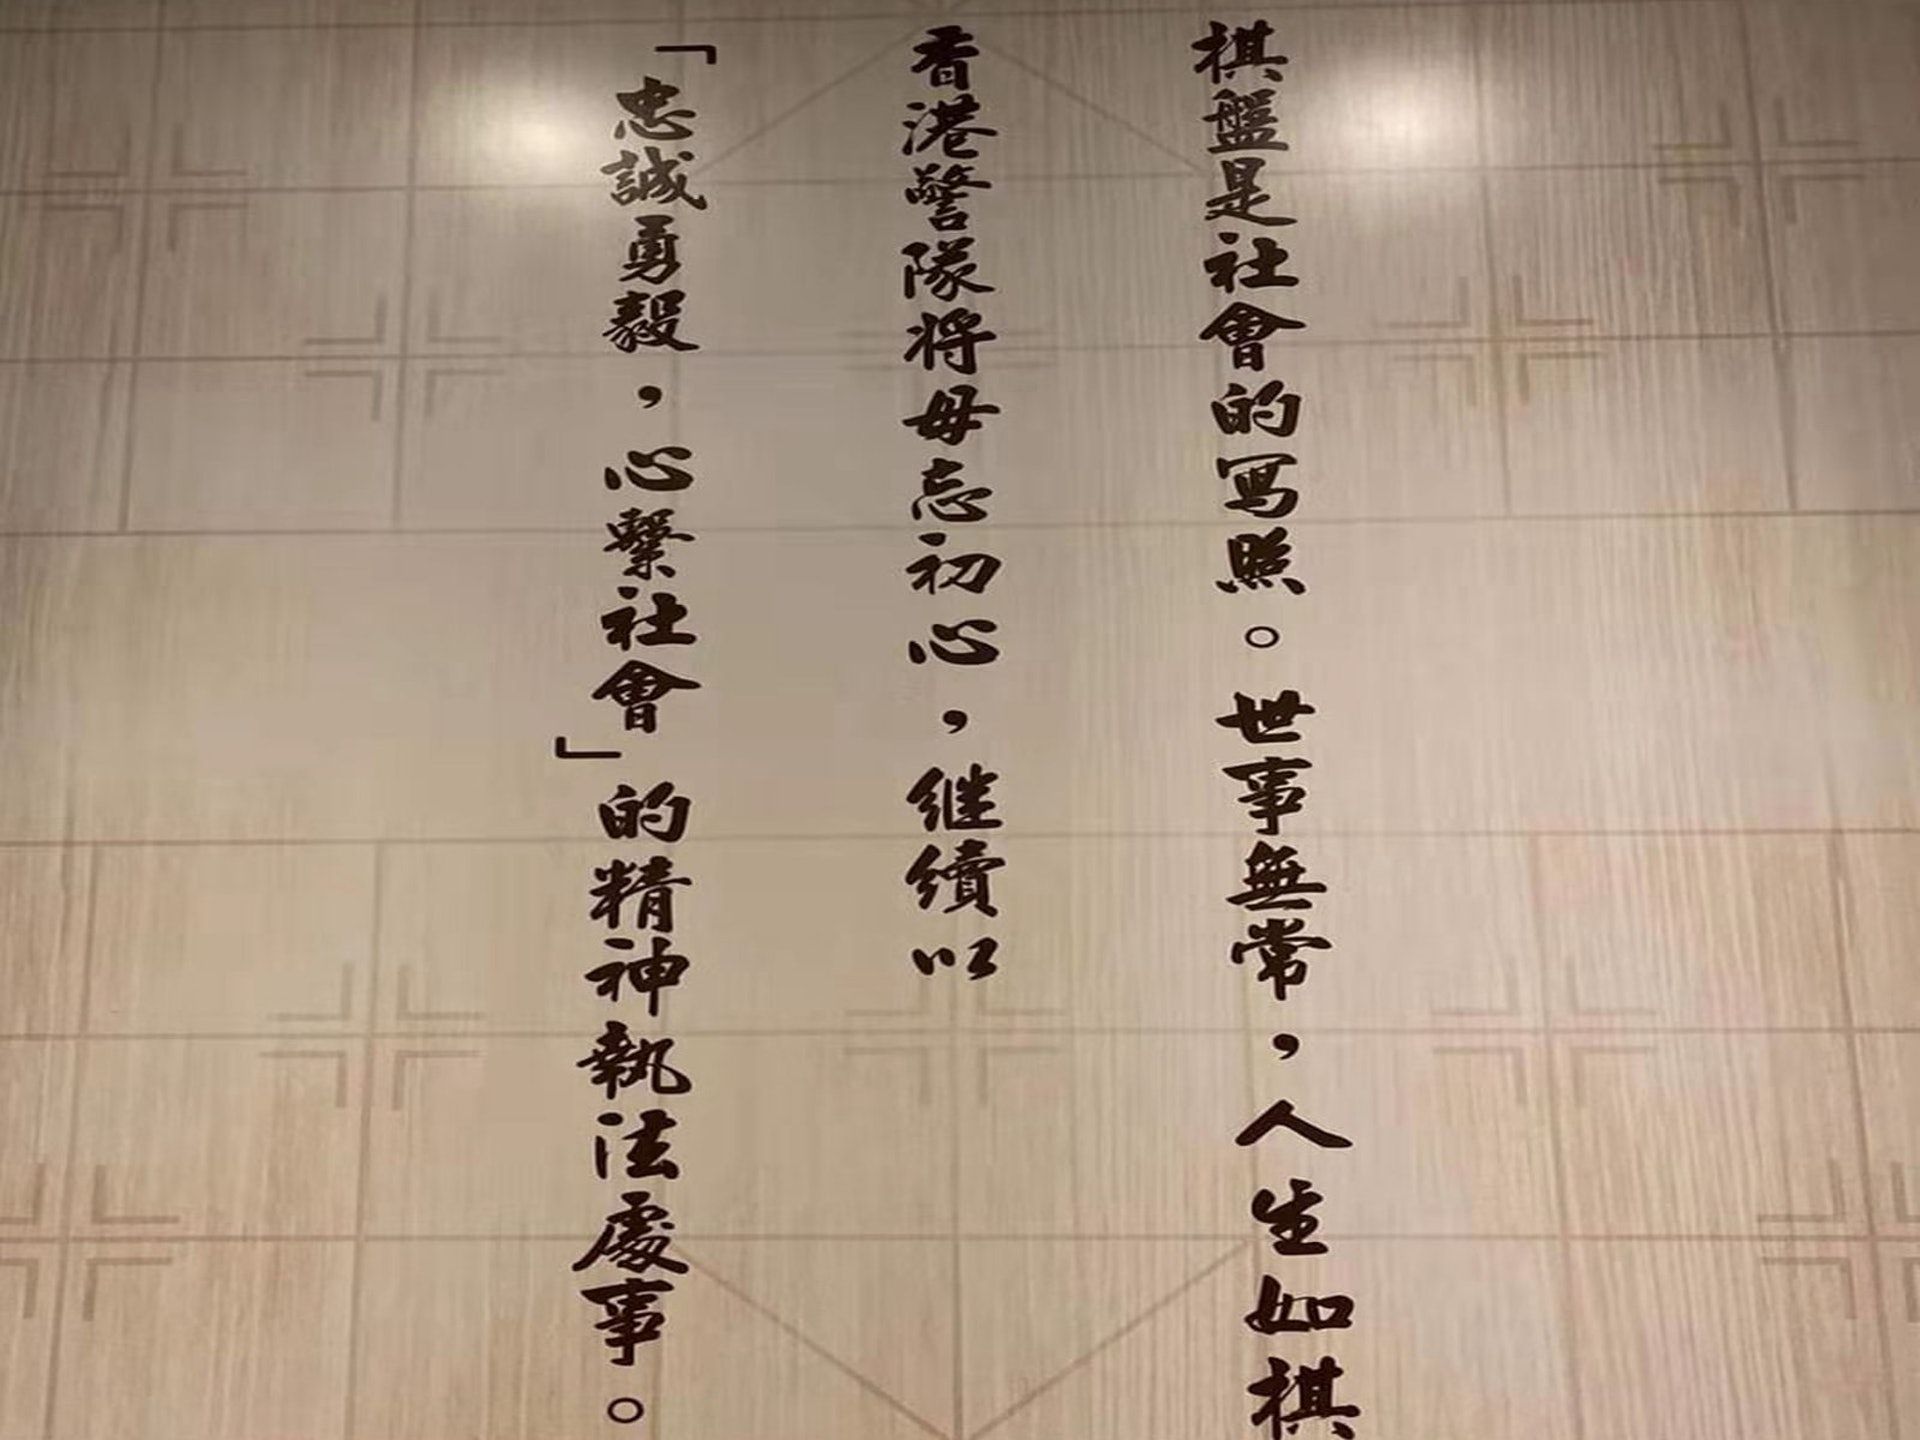 棋盤是社會的寫照。世事無常，人生如棋
香港警隊將毋忘初心，继續以
「忠誠勇毅，心繫社會」的精神執法處事。